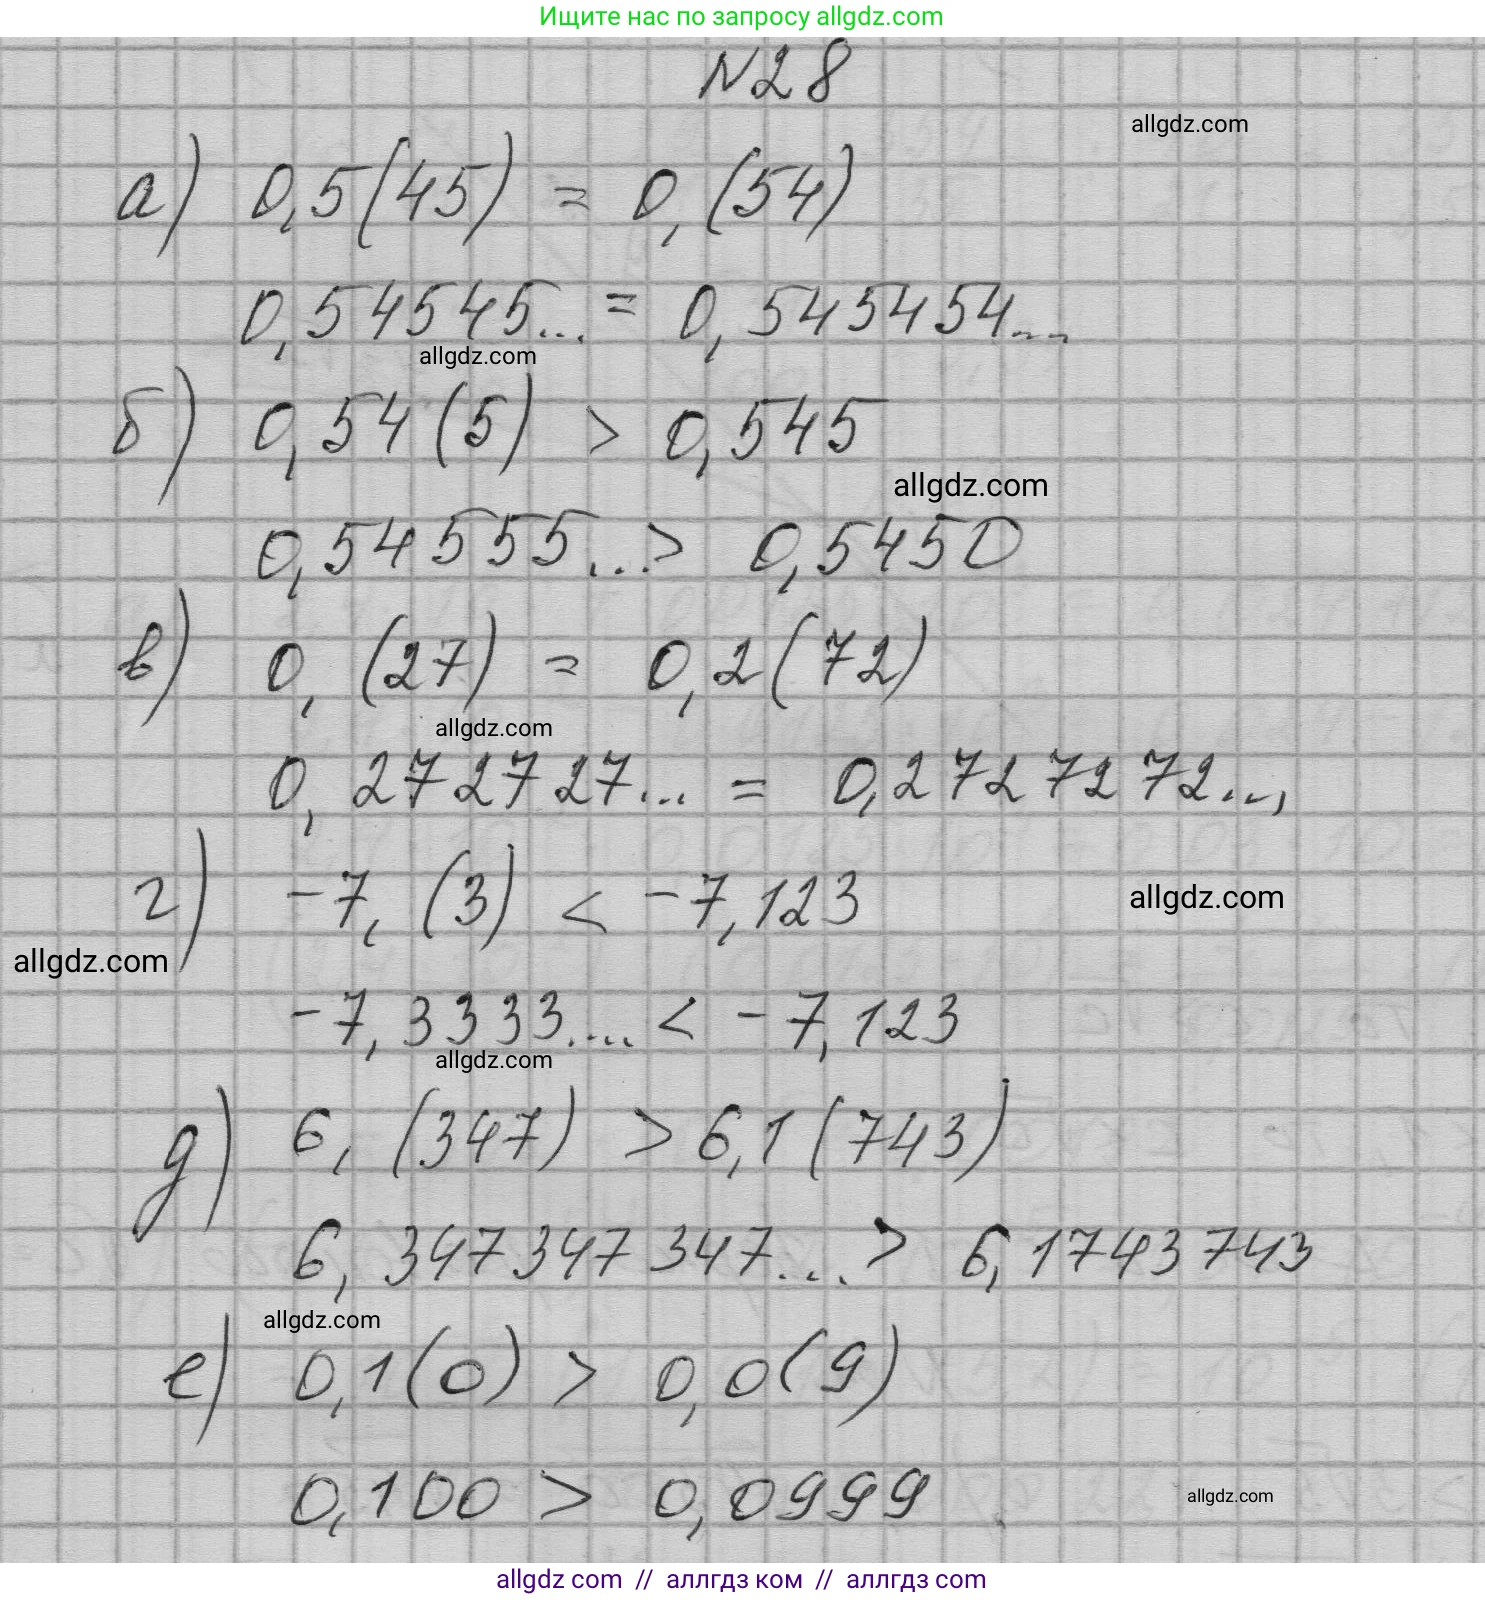 Ищите нас по запросу allgdz.com
N28
allgdz.com
а) 0,5(45) = 0,(54)
0,54545... = 0,545454...
allgdz.com
б) 0,54(5) > 0,545
allgdz.com
0,54555...> 0,5450
в) 0,(27) = 0,2(72)
allgdz.com
0,272727... = 0,2727272...,
г) -7,(3) < -7,123
allgdz.com
allgdz.com
-7,3333.... < -7,123
allgdz.com
д) 6,(347) > 6,1(743)
6,347347347...> 6,1743743
allgdz.com
е) 0,1(0) > 0,0(9)
0,100 > 0,0999
allgdz.com
allgdz com // аллгдз ком // аллгдз com